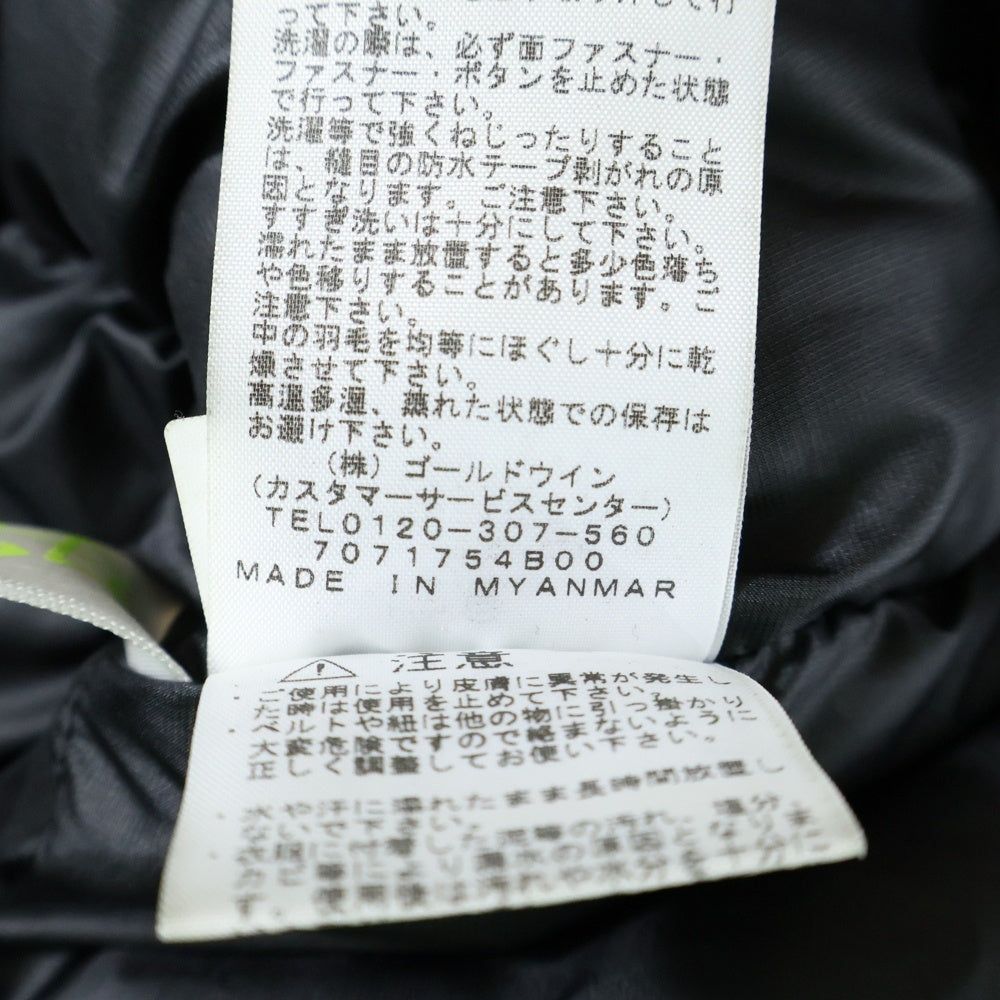 って下さい。
洗濯の際は、必ず面ファスナー・
ファスナー・ボタンを止めた状態
で行って下さい。
洗濯等で強くねじったりすること
は、縫い目の防水テープ剥がれの原
因となります。ご注意下さい。
すすぎ洗いは十分にして下さい。
濡れたまま放置すると多少色落ち
や色移りすることがあります。ご
注意下さい。
中の羽毛を均等にほぐし十分に乾
燥させて下さい。
高温多湿、蒸れた状態での保存は
お避け下さい。
(株)ゴールドウイン
(カスタマーサービスセンター)
TEL0120-307-560
7071754B00
MADE IN MYANMAR
注意
ご使用により皮膚に異常が発生し
た時は使用を止めて下さい。
ベルトや紐は他の物に引っ掛かり
大変危険ですので絶対にないように
正しく調整してお使い下さい。
水や汗に濡れたまま長時間放置し
ないで下さい。